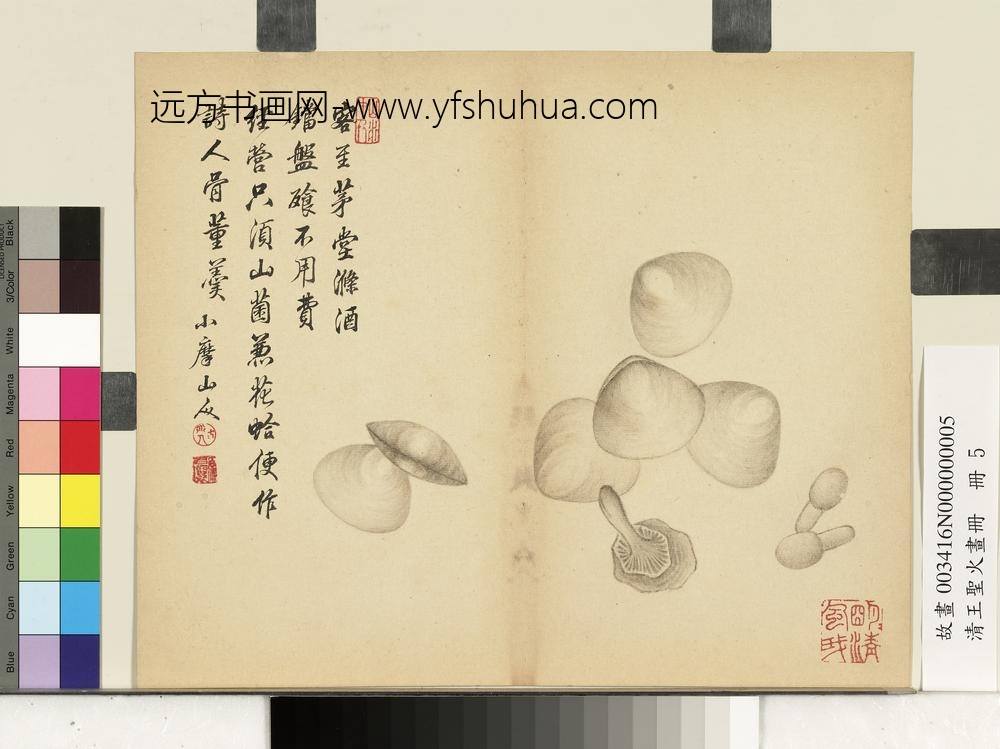 远方书画网-www.yfshuhua.com
客至茅堂滌酒
鐺盤飧不用費
經營只須山菌
蒸花蛤便作
詩人骨董羹
小摩山人
故畫 003416N000000005
清王聖火畫冊 冊 5
Black
3/Color
White
Magenta
Red
Yellow
Green
Cyan
Blue